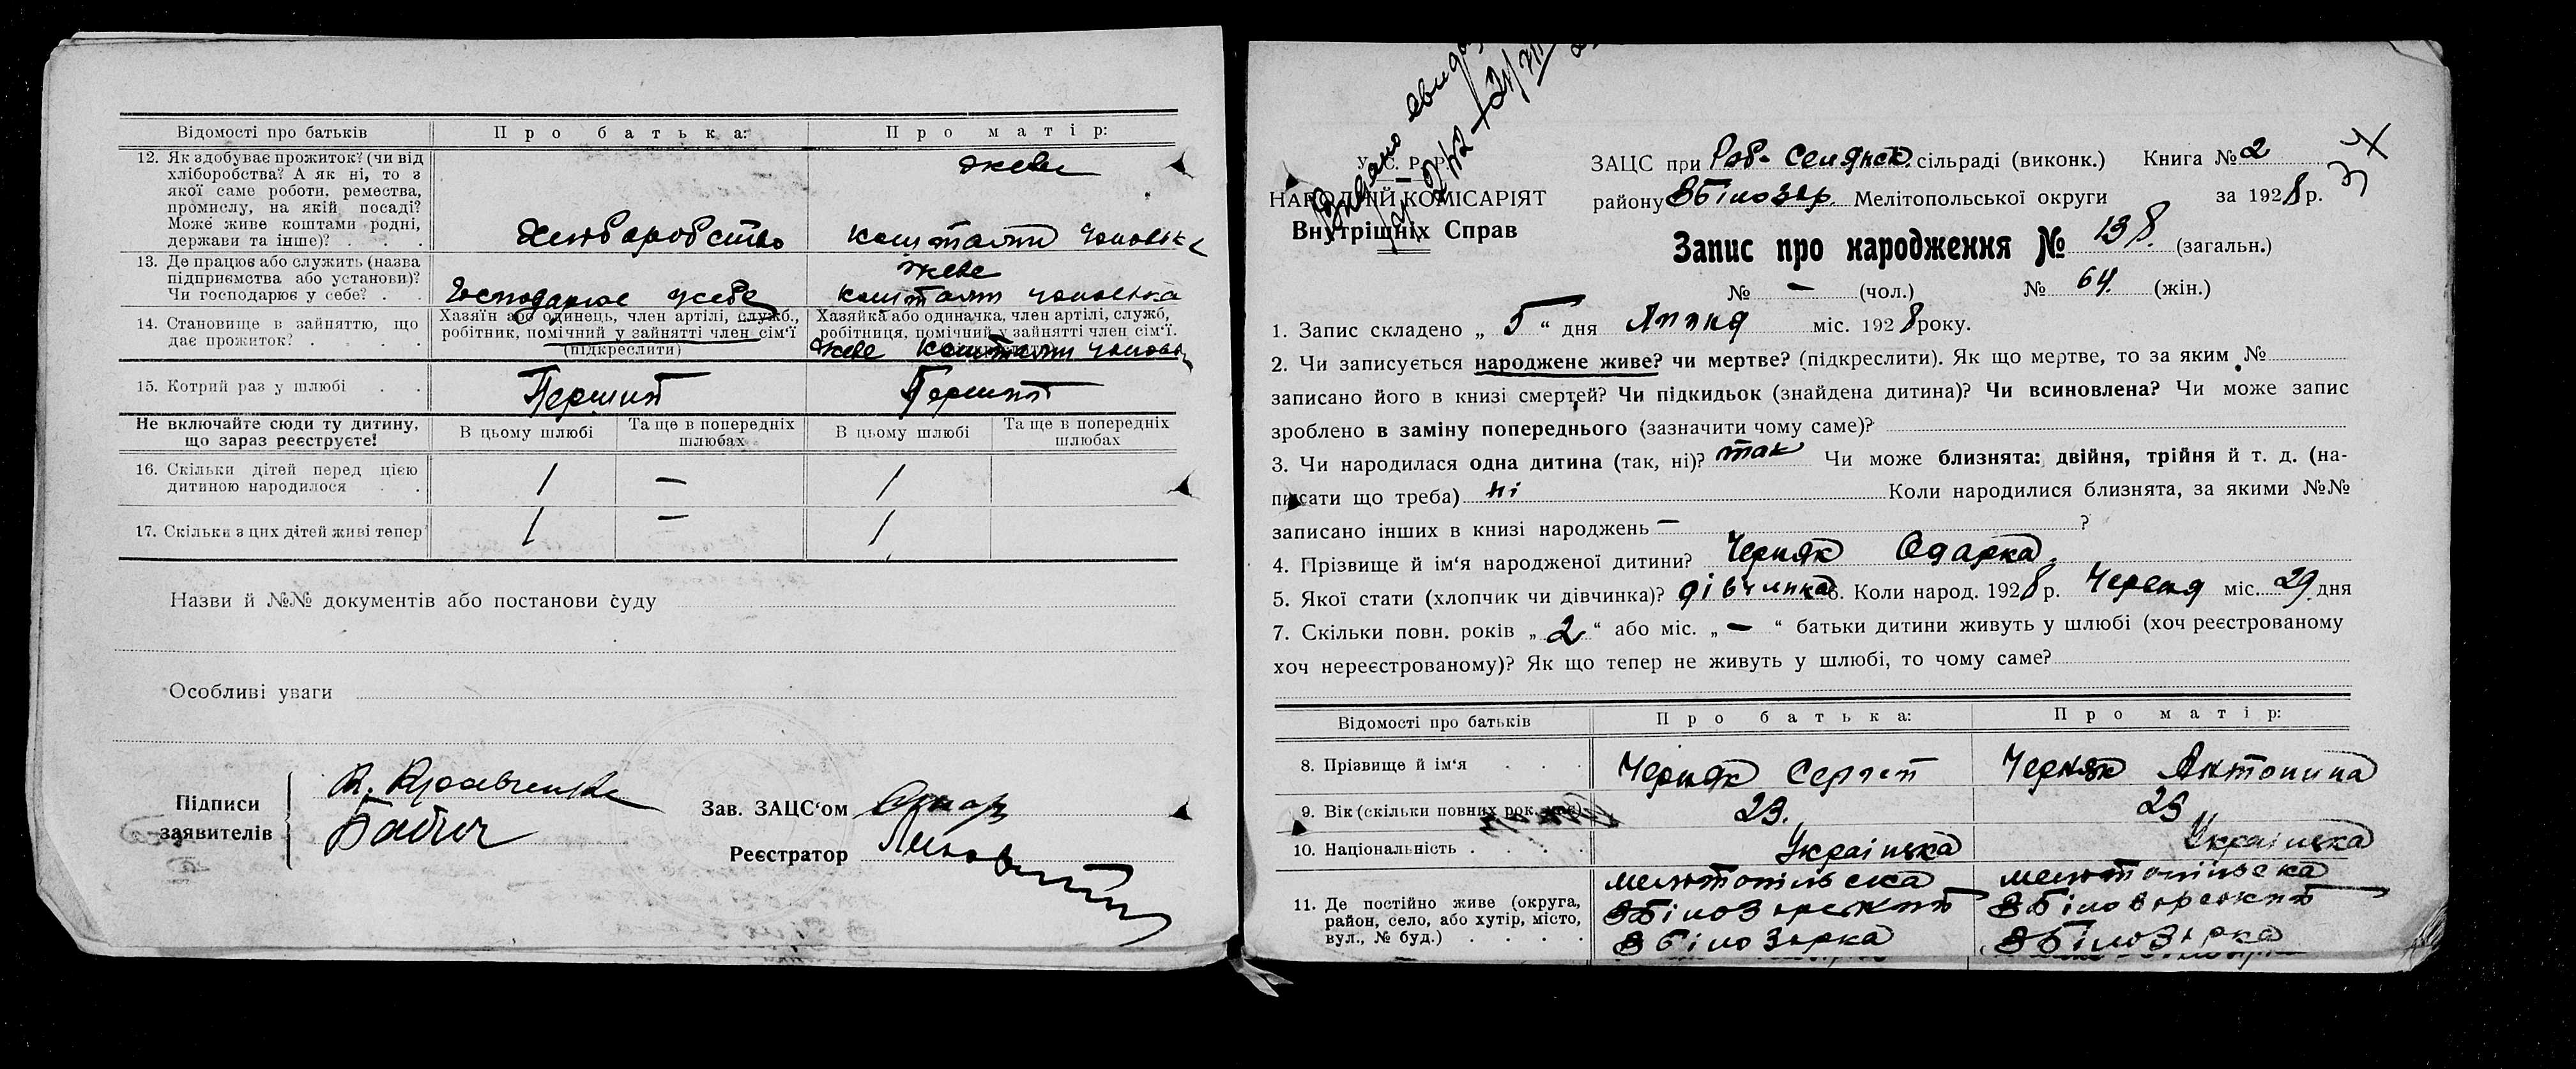 Відомості про батьків
Про батька:
Про матір:
12. Як здобуває прожиток? (чи від
хліборобства? А як ні, то з
якої саме роботи, ремества,
промислу, на якій посаді?
Може живе коштами родні,
держави та інше)? . . .
Хліборобство
живе
коштами чоловіка
13. Де працює або служить (назва
підприємства або установи)?
Чи господарює у себе? . .
Господарює у себе
живе
коштами чоловіка
14. Становище в зайняттю, що
дає прожиток? . . . .
Хазяїн або одинець, член артілі, служб.,
робітник, помічний у зайнятті член сім'ї
(підкреслити)
Хазяйка або одиначка, член артілі, служб,
робітниця, помічний у зайнятті член сім'ї.
живе коштами
15. Котрий раз у шлюбі . .
Перший
Перший
Не включайте сюди ту дитину,
що зараз реєструєте!
В цьому шлюбі
Та ще в попередніх
шлюбах
В цьому шлюбі
Та ще в попередніх
шлюбах
16. Скільки дітей перед цією
дитиною народилося . .
1 — 1
17. Скільки з цих дітей живі тепер
1 — 1
Назви й №№ документів або постанови суду
Особливі уваги
Підписи
заявителів
К. Кравченко
Бабич
Зав. ЗАЦС‘ом
Реєстратор
Видано
У. С. Р. Р.
НАРОДНІЙ КОМІСАРІЯТ
Внутрішніх Справ
ЗАЦС при Роб-Селянськ. сільраді (виконк.) Книга № 2
району ВБілозер. Мелітопольської округи за 1928 р.
34
Запис про народження № 138. (загальн.)
№ — (чол.) № 64. (жін.)
1. Запис складено „ 5 “ дня Липня міс. 1928 року.
2. Чи записується народжене живе? чи мертве? (підкреслити). Як що мертве, то за яким №
записано його в книзі смертей? Чи підкидьок (знайдена дитина)? Чи всиновлена? Чи може запис
зроблено в заміну попереднього (зазначити чому саме)?
3. Чи народилася одна дитина (так, ні)? так Чи може близнята: двійня, трійня й т. д. (на-
писати що треба) ні Коли народилися близнята, за якими №№
записано інших в книзі народжень — ?
4. Прізвище й ім‘я народженої дитини? Черняк Одарка
5. Якої стати (хлопчик чи дівчинка)? дівчинка 6. Коли народ. 1928 р. Червня міс. 29 дня
7. Скільки повн. років „ 2 “ або міс. „ — “ батьки дитини живуть у шлюбі (хоч реєстрованому
хоч нереєстрованому)? Як що тепер не живуть у шлюбі, то чому саме?
Відомості про батьків
Про батька:
Про матір:
8. Прізвище й ім‘я . . .
Черняк Сергій
Черняк Антонина
9. Вік (скільки повних рок.
23.
23
10. Національність . . . .
Українка
Українка
11. Де постійно живе (округа,
район, село, або хутір, місто,
вул., № буд.) . . . .
мелітопільска
ВБілозерский
ВБілозерка
мелітопільска
ВБілозерский
ВБілозерка